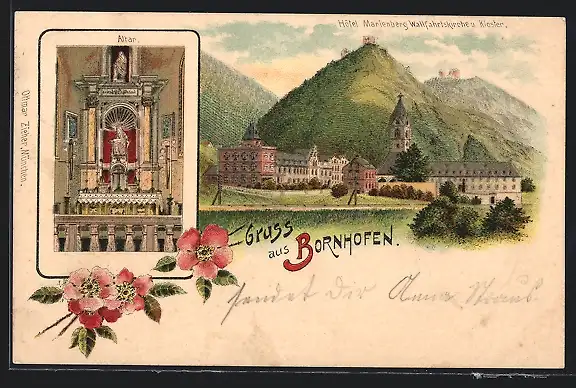 Hôtel Marienberg, Wallfahrtskirche u. Kloster.
Altar.
Ottmar Zieher, München.
Gruss
aus BORNHOFEN.
sendet Dir Anna Straub.